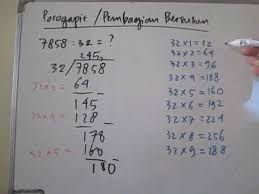 Porogapit / Pembagian Bersusun
7858 : 32 = ?
245,
32/7858
32 x 2 = 64 -
145
32 x 4 = 128 -
178
32 x 5 = 160 -
180
32 x 1 = 32
32 x 2 = 64
32 x 3 = 96
32 x 4 = 128
32 x 5 = 160
32 x 6 = 192
32 x 7 = 224
32 x 8 = 256
32 x 9 = 288